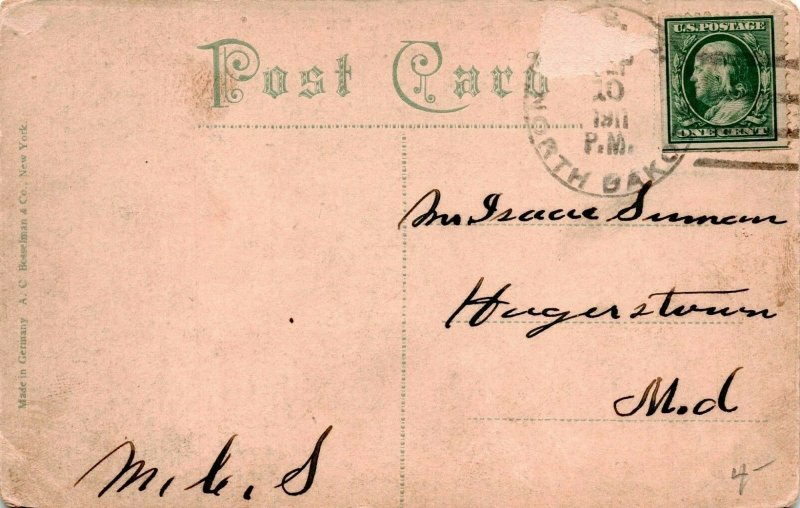 Post Card
U.S. POSTAGE
ONE CENT
10
1911
P.M.
NORTH DAKO
Mr Isaac Suman
Hagerstown
M.d
M, C, S
4-
Made in Germany A. C. Bosselman & Co., New York.